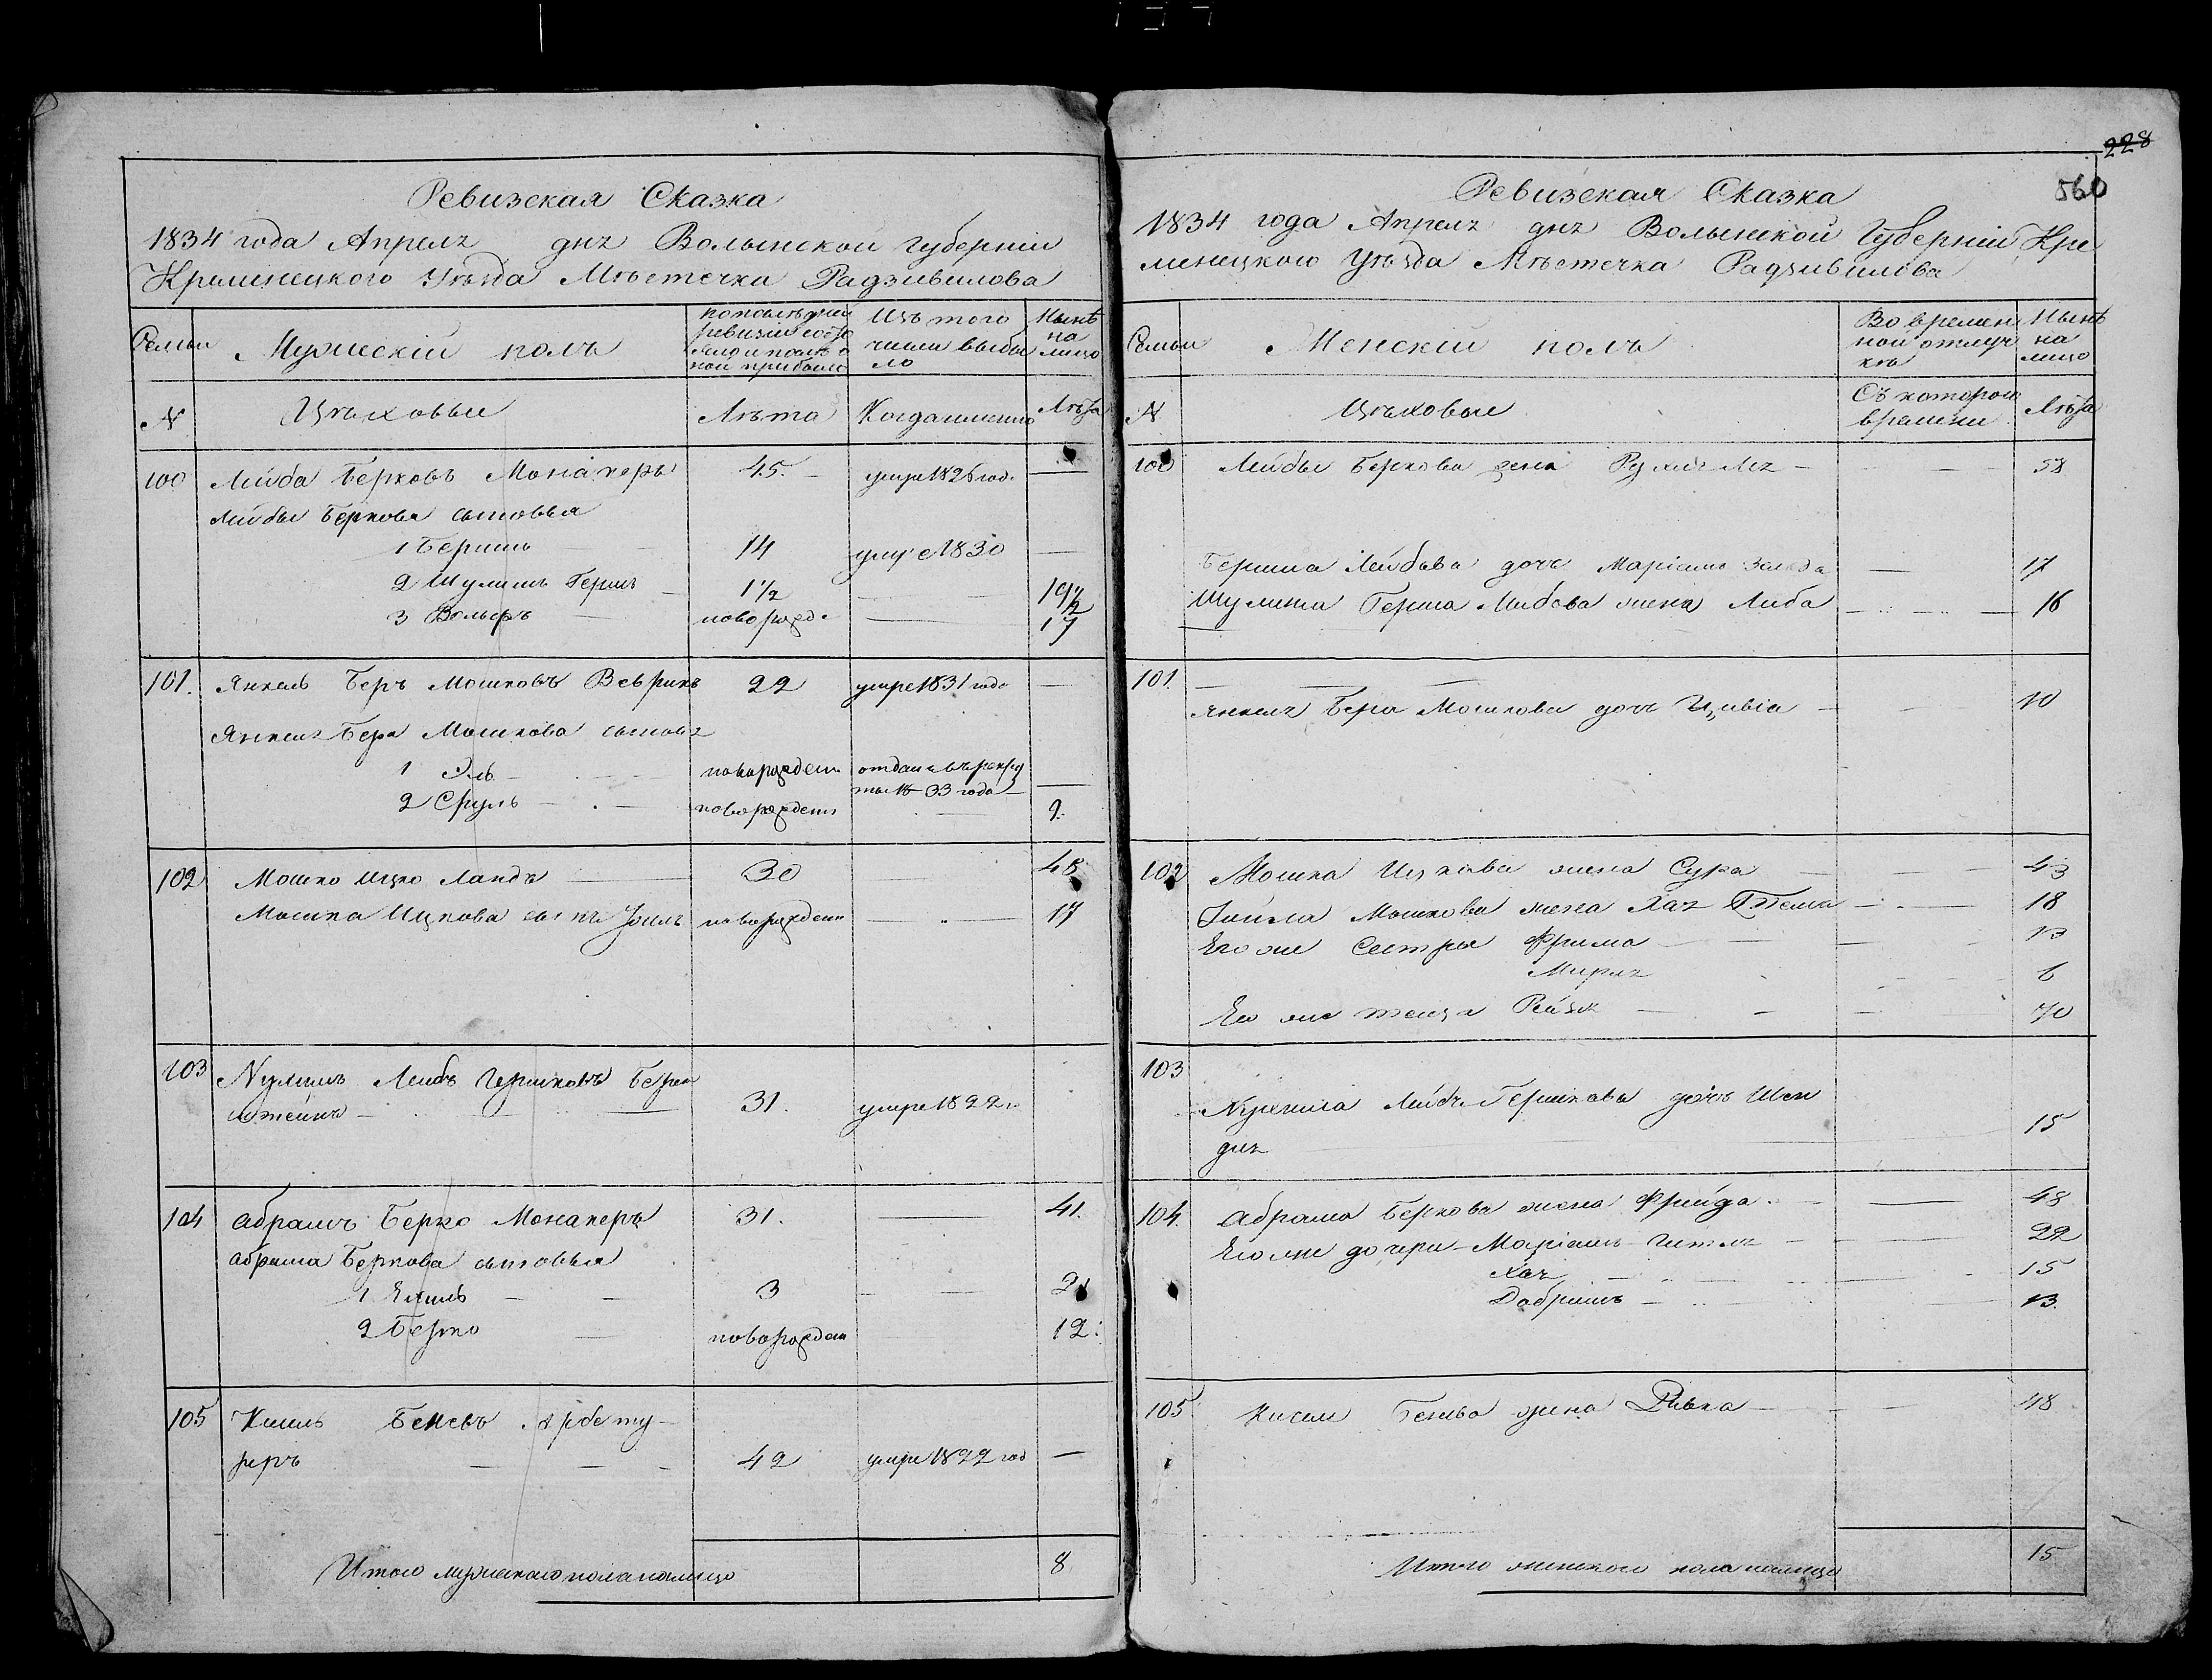 228
560
Ревизская Сказка
1834 года Апреля дня Волынской Губерніи
Кременецкого Уѣзда Мѣстечка Радзивилова
Семьи
Мужескій полъ
по послѣдней
ревизіи состо
яло и послѣ о
ной прибыло
Изъ того
числа выбы
ло
Нынѣ
на
лицо
№
Цѣховыи
Лѣта
Когда именно
Лѣта
100 Лейба Берковъ Монахеръ 45. — умре 1826 год. —
Лейбы Беркова сыновья
1 Бершъ — 14 умре 1830 —
2 Шулимъ Гершъ — 1½ — 19½
3 Вольфъ — новорожде — 17
101. Янкель Беръ Мошковъ 22 умре 1831 года —
Янкеля Бера Мошкова сыновя
1 Эль — новорожден отдан въ рекру
ты 1833 года —
2 Сруль — новорожден — 9.
102 Мошко Ицко Ландъ — 30 — 48
Мошка Ицкова сынъ новорожден — 17
103 Лейбъ Гершковъ Берен
штейнъ — 31. умре 1822 г.
104 Абрамъ Берко Монахеръ 31. — 41.
Абрама Беркова сыновья
1 — 3 — 21
2 Берко — новорожден 12.
105 Кисиль Беневъ Арбету-
реръ — 42 умре 1822 год —
Итого мужескаго пола налицо 8
Ревизская Сказка
1834 года Апреля дня Волынской Губерніи Кре
менецкого Уѣзда Мѣстечка Радзивилова
Семьи
Женскій полъ
Во времен
ной отлуч
кѣ
Нынѣ
на
лицо
№
Цѣховыи
Съ которого
времени
Лѣта
100 Лейбы Беркова жена — 58
Берша Лейбова дочь Маріамъ — 17
Шулима Герша Лейбова жена Либа — 16
101. — — —
Янкеля Бера Мошкова дочь Цивіа — 10
102 Мошка Ицкова жена Сура — 43
Мошкова жена Хая — 18
Его же Сестры Фрима — 13
Мирля 6
Его же теща Рейзя — 70
103
Лейбъ Гершкова дочь Шен
для 15
104. Абрама Беркова жена Фрейда — 48
Его же дочери Маріамъ Гитля — 22
Хая — 15
Добришъ — 13.
105 Кисиля Бенева жена Ривка — 48
Итого женского пола налицо 15